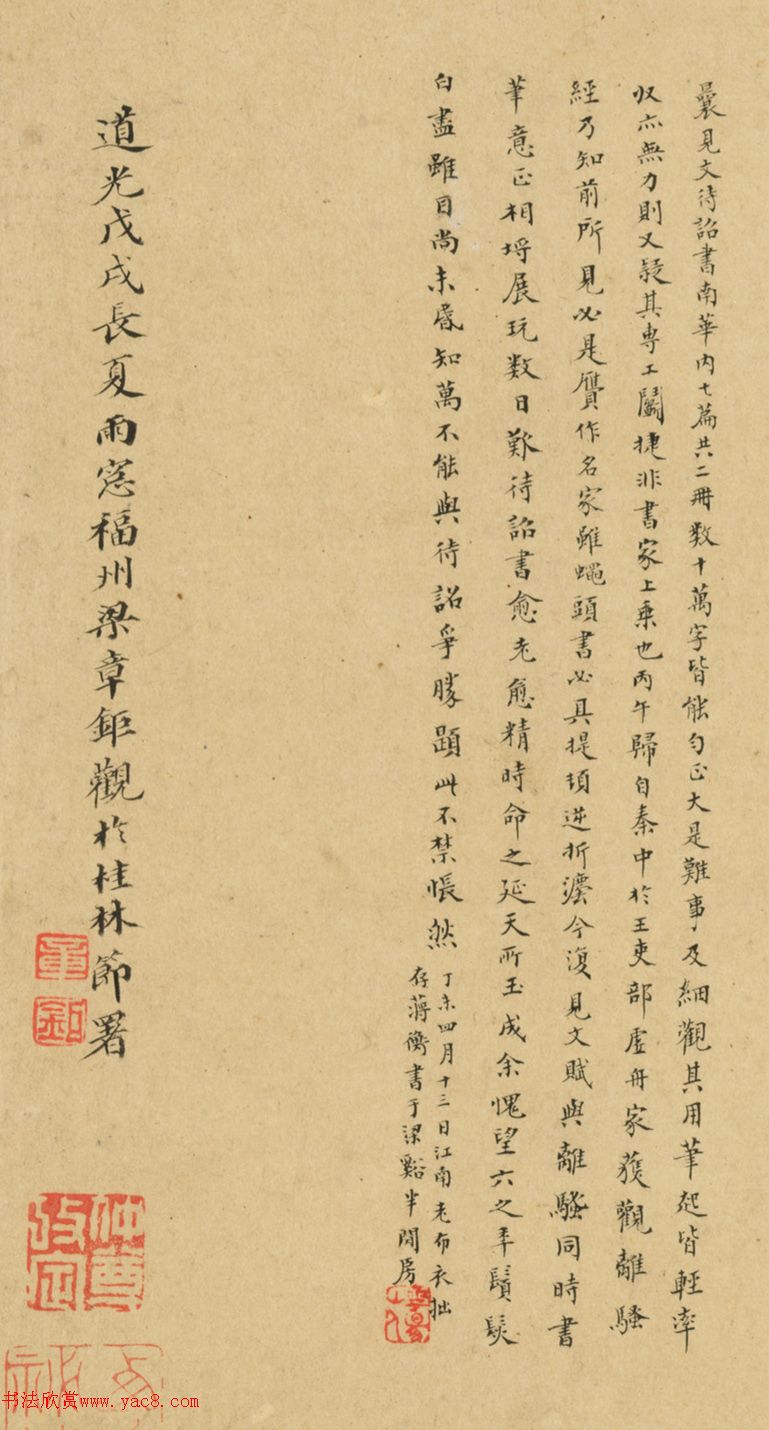 曩見文待詔書南華內七篇共二冊数十萬字皆能勻正大是難事及細觀其用筆起皆輕率
収亦無力則又疑其專工鬭捷非書家上乗也丙午歸自秦中於王吏部虛舟家獲觀離騷
經乃知前所見必是贋作名家雖蠅頭書必具提頓逆折澀今復見文賦與離騷同時書
筆意正相埒展玩数日歎待詔書愈老愈精時命之延天所玉成余愧望六之年鬚髮
白盡雖目尚未昏知萬不能與待詔爭勝題此不禁悵然
丁未四月十三日江南老布衣拙
存蔣衡書于梁谿半閒房
道光戊戌長夏雨窓福州梁章鉅觀於桂林節署
书法欣赏www.yac8.com